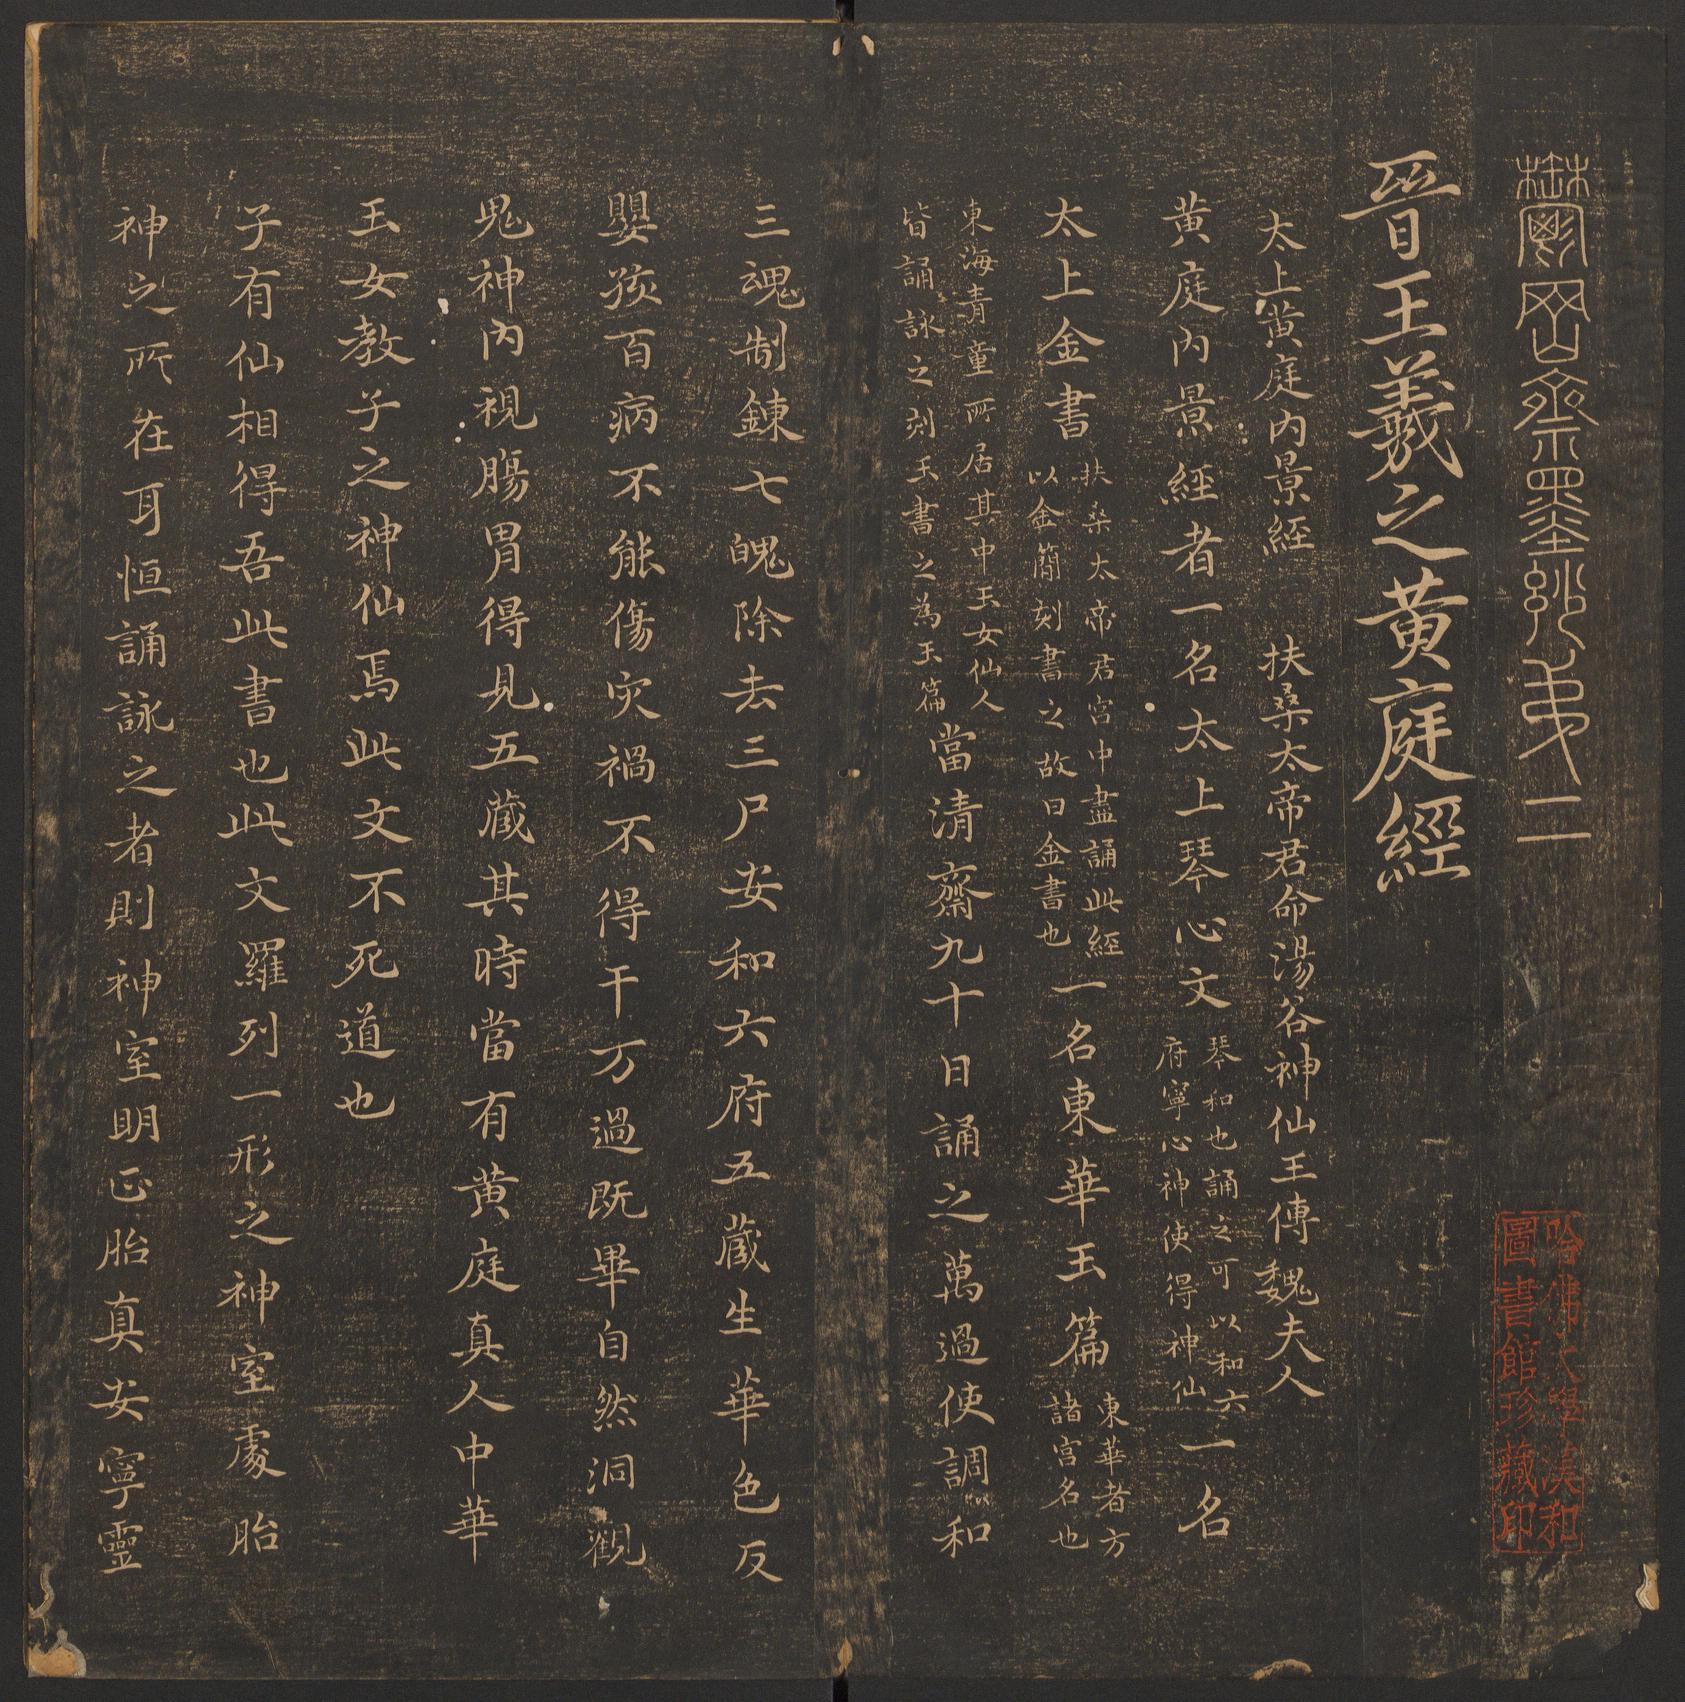 鬱岡齋墨妙弟二
晉王羲之黄庭經
太上黄庭內景經 扶桑太帝君命湯谷神仙王傳魏夫人
黄庭内景經者一名太上琴心文琴和也誦之可以和六府寧心神使得神仙一名
太上金書扶桑太帝君宮中盡誦此經以金簡刻書之故曰金書也一名東華玉篇東華者方諸宮名也
東海青童所居其中玉女仙人皆誦詠之刻玉書之為玉篇當清齋九十日誦之萬過使調和
三魂制鍊七魄除去三尸安和六府五藏生華色反
嬰孩百病不能傷灾禍不得干万過既畢自然洞觀
鬼神內視腸胃得見五藏其時當有黄庭真人中華
玉女教子之神仙焉此文不死道也
子有仙相得吾此書也此文羅列一形之神室處胎
神之所在耳恒誦詠之者則神室明正胎真安寧靈
哈佛大學漢和
圖書館珍藏印